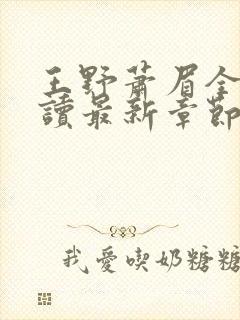 王野蕭眉全
讀最新章節
我愛喫奶糖糖